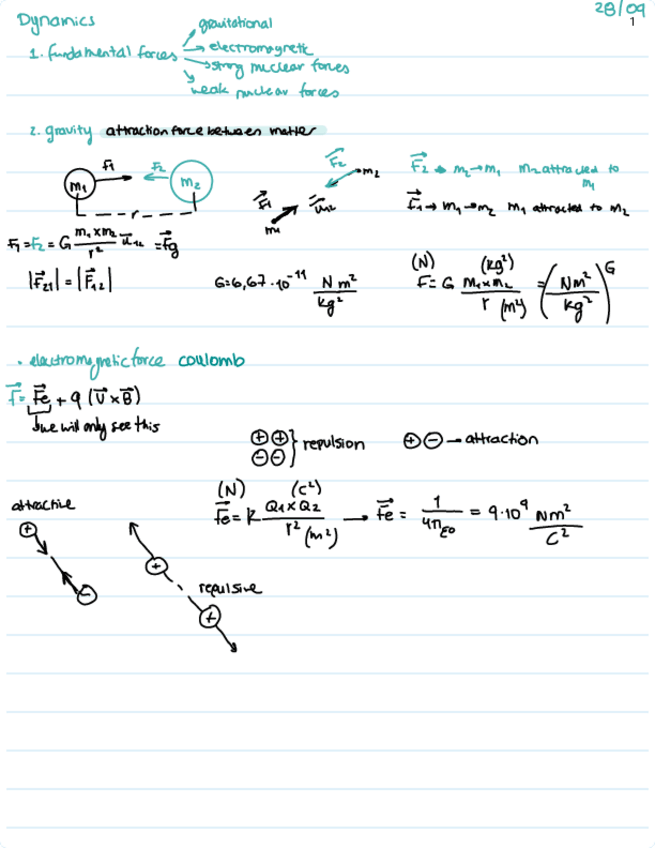 28/09
1
Dynamics
1. fundamental forces
gravitational
electromagnetic
strong nuclear forces
weak nuclear forces
2. gravity attraction force between matter
m₁ F₁ → ← F₂ m₂
r
F₂ m₂
F₁ u₁₂
m₁
F⃗₂ → m₂→m₁ m₂ attracted to m₁
F⃗₁ → m₁→m₂ m₁ attracted to m₂
F₁=F₂ = G m₁×m₂/r² u⃗₁₂ = F⃗g
|F⃗₂₁| = |F⃗₁₂|
G=6,67·10⁻¹¹ Nm²/kg²
(N) (kg²)
F= G m₁×m₂/r (m²) = (Nm²/kg²) G
· electromagnetic force coulomb
F⃗= F⃗e + q (v⃗×B⃗)
we will only see this
⊕⊕ ⊖⊖ } repulsion
⊕⊖ → attraction
(N) (C²)
F⃗e = k Q₁×Q₂/r² (m²) → F⃗e = 1/4πε₀ = 9·10⁹ Nm²/C²
attractive
+
-
+
repulsive
+